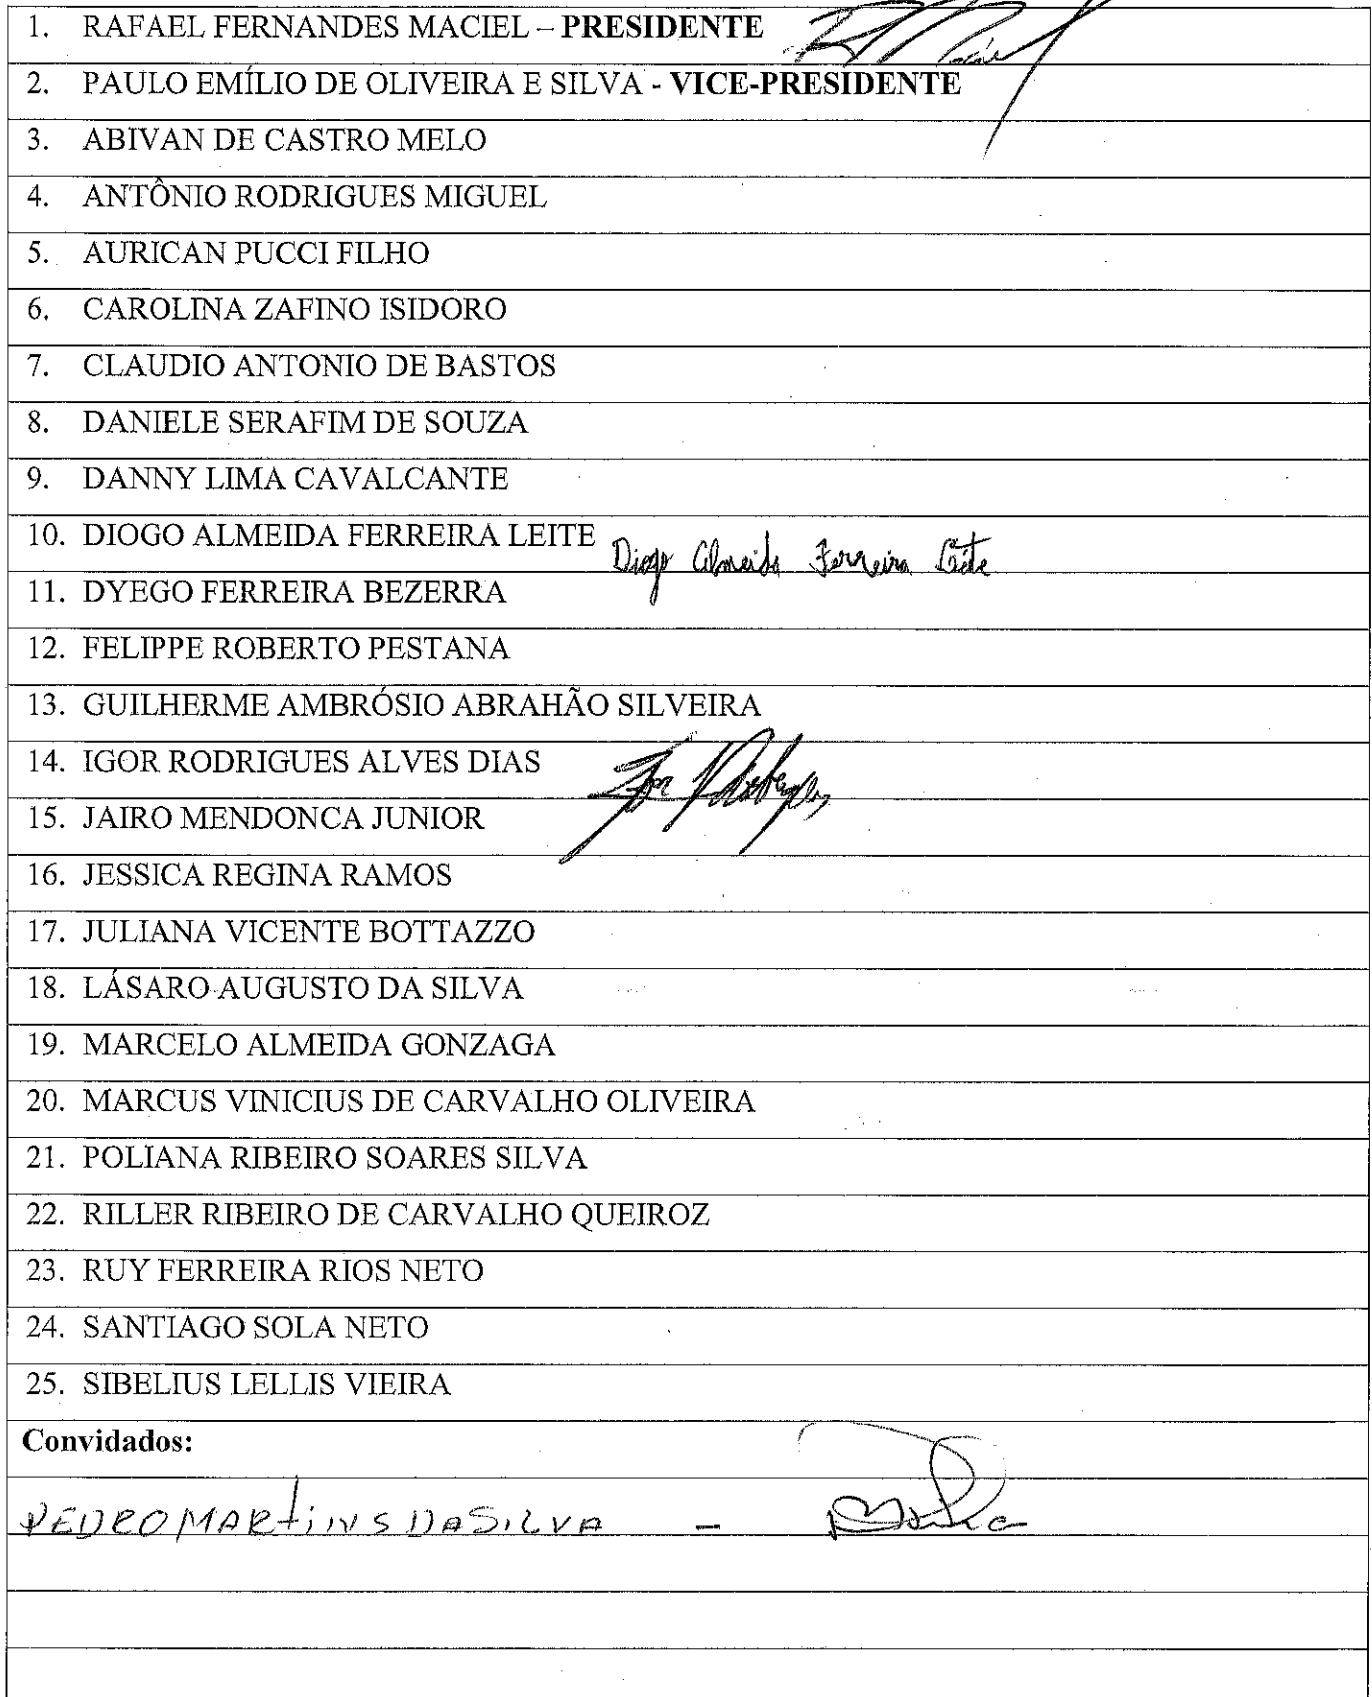 1. RAFAEL FERNANDES MACIEL – PRESIDENTE
2. PAULO EMÍLIO DE OLIVEIRA E SILVA - VICE-PRESIDENTE
3. ABIVAN DE CASTRO MELO
4. ANTÔNIO RODRIGUES MIGUEL
5. AURICAN PUCCI FILHO
6. CAROLINA ZAFINO ISIDORO
7. CLAUDIO ANTONIO DE BASTOS
8. DANIELE SERAFIM DE SOUZA
9. DANNY LIMA CAVALCANTE
10. DIOGO ALMEIDA FERREIRA LEITE Diogo Almeida Ferreira Leite
11. DYEGO FERREIRA BEZERRA
12. FELIPPE ROBERTO PESTANA
13. GUILHERME AMBRÓSIO ABRAHÃO SILVEIRA
14. IGOR RODRIGUES ALVES DIAS
15. JAIRO MENDONCA JUNIOR
16. JESSICA REGINA RAMOS
17. JULIANA VICENTE BOTTAZZO
18. LÁSARO AUGUSTO DA SILVA
19. MARCELO ALMEIDA GONZAGA
20. MARCUS VINICIUS DE CARVALHO OLIVEIRA
21. POLIANA RIBEIRO SOARES SILVA
22. RILLER RIBEIRO DE CARVALHO QUEIROZ
23. RUY FERREIRA RIOS NETO
24. SANTIAGO SOLA NETO
25. SIBELIUS LELLIS VIEIRA
Convidados:
PEDRO MARtiNS DA SiLVA –